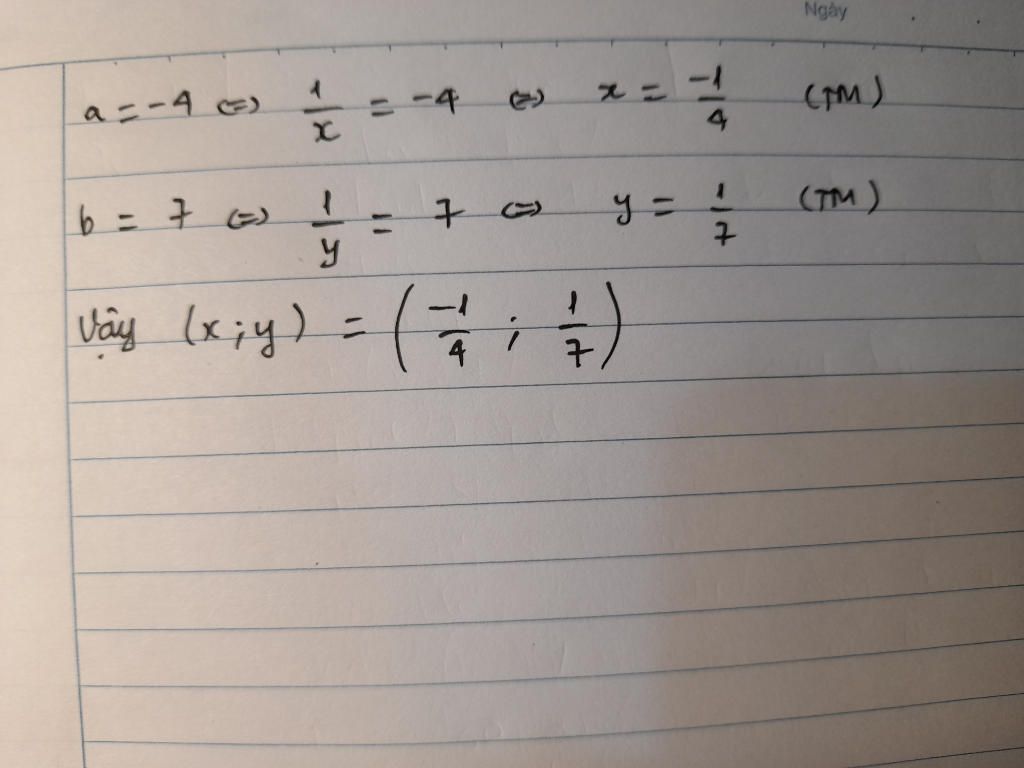 Ngày
a = -4 <=> 1/x = -4 <=> x = -1/4 (TM)
b = 7 <=> 1/y = 7 <=> y = 1/7 (TM)
Vậy (x;y) = (-1/4 ; 1/7)